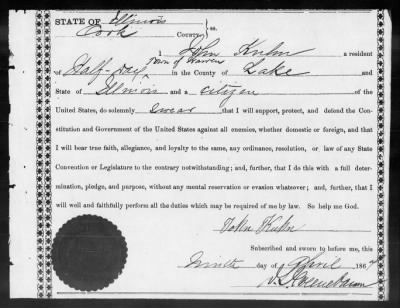 STATE OF Illinois } ss.
Cook County
I John Kuhn a resident
of Half-day Town of Warren in the County of Lake and
State of Illinois and a citizen of the
United States, do solemnly swear that I will support, protect, and defend the Consti-
tution and Government of the United States against all enemies, whether domestic or foreign, and that
I will bear true faith, allegiance, and loyalty to the same, any ordinance, resolution, or law of any State
Convention or Legislature to the contrary notwithstanding; and, further, that I do this with a full deter-
mination, pledge, and purpose, without any mental reservation or evasion whatever; and, further, that I
will well and faithfully perform all the duties which may be required of me by law. So help me God.
John Kuhn
Subscribed and sworn to before me, this
Ninth day of April 186